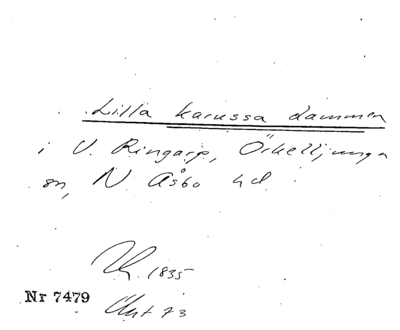 Lilla karussa dammen
i V. Ringarp, Örkelljunga
sn, N Åsbo hd
1835
Nr 7479